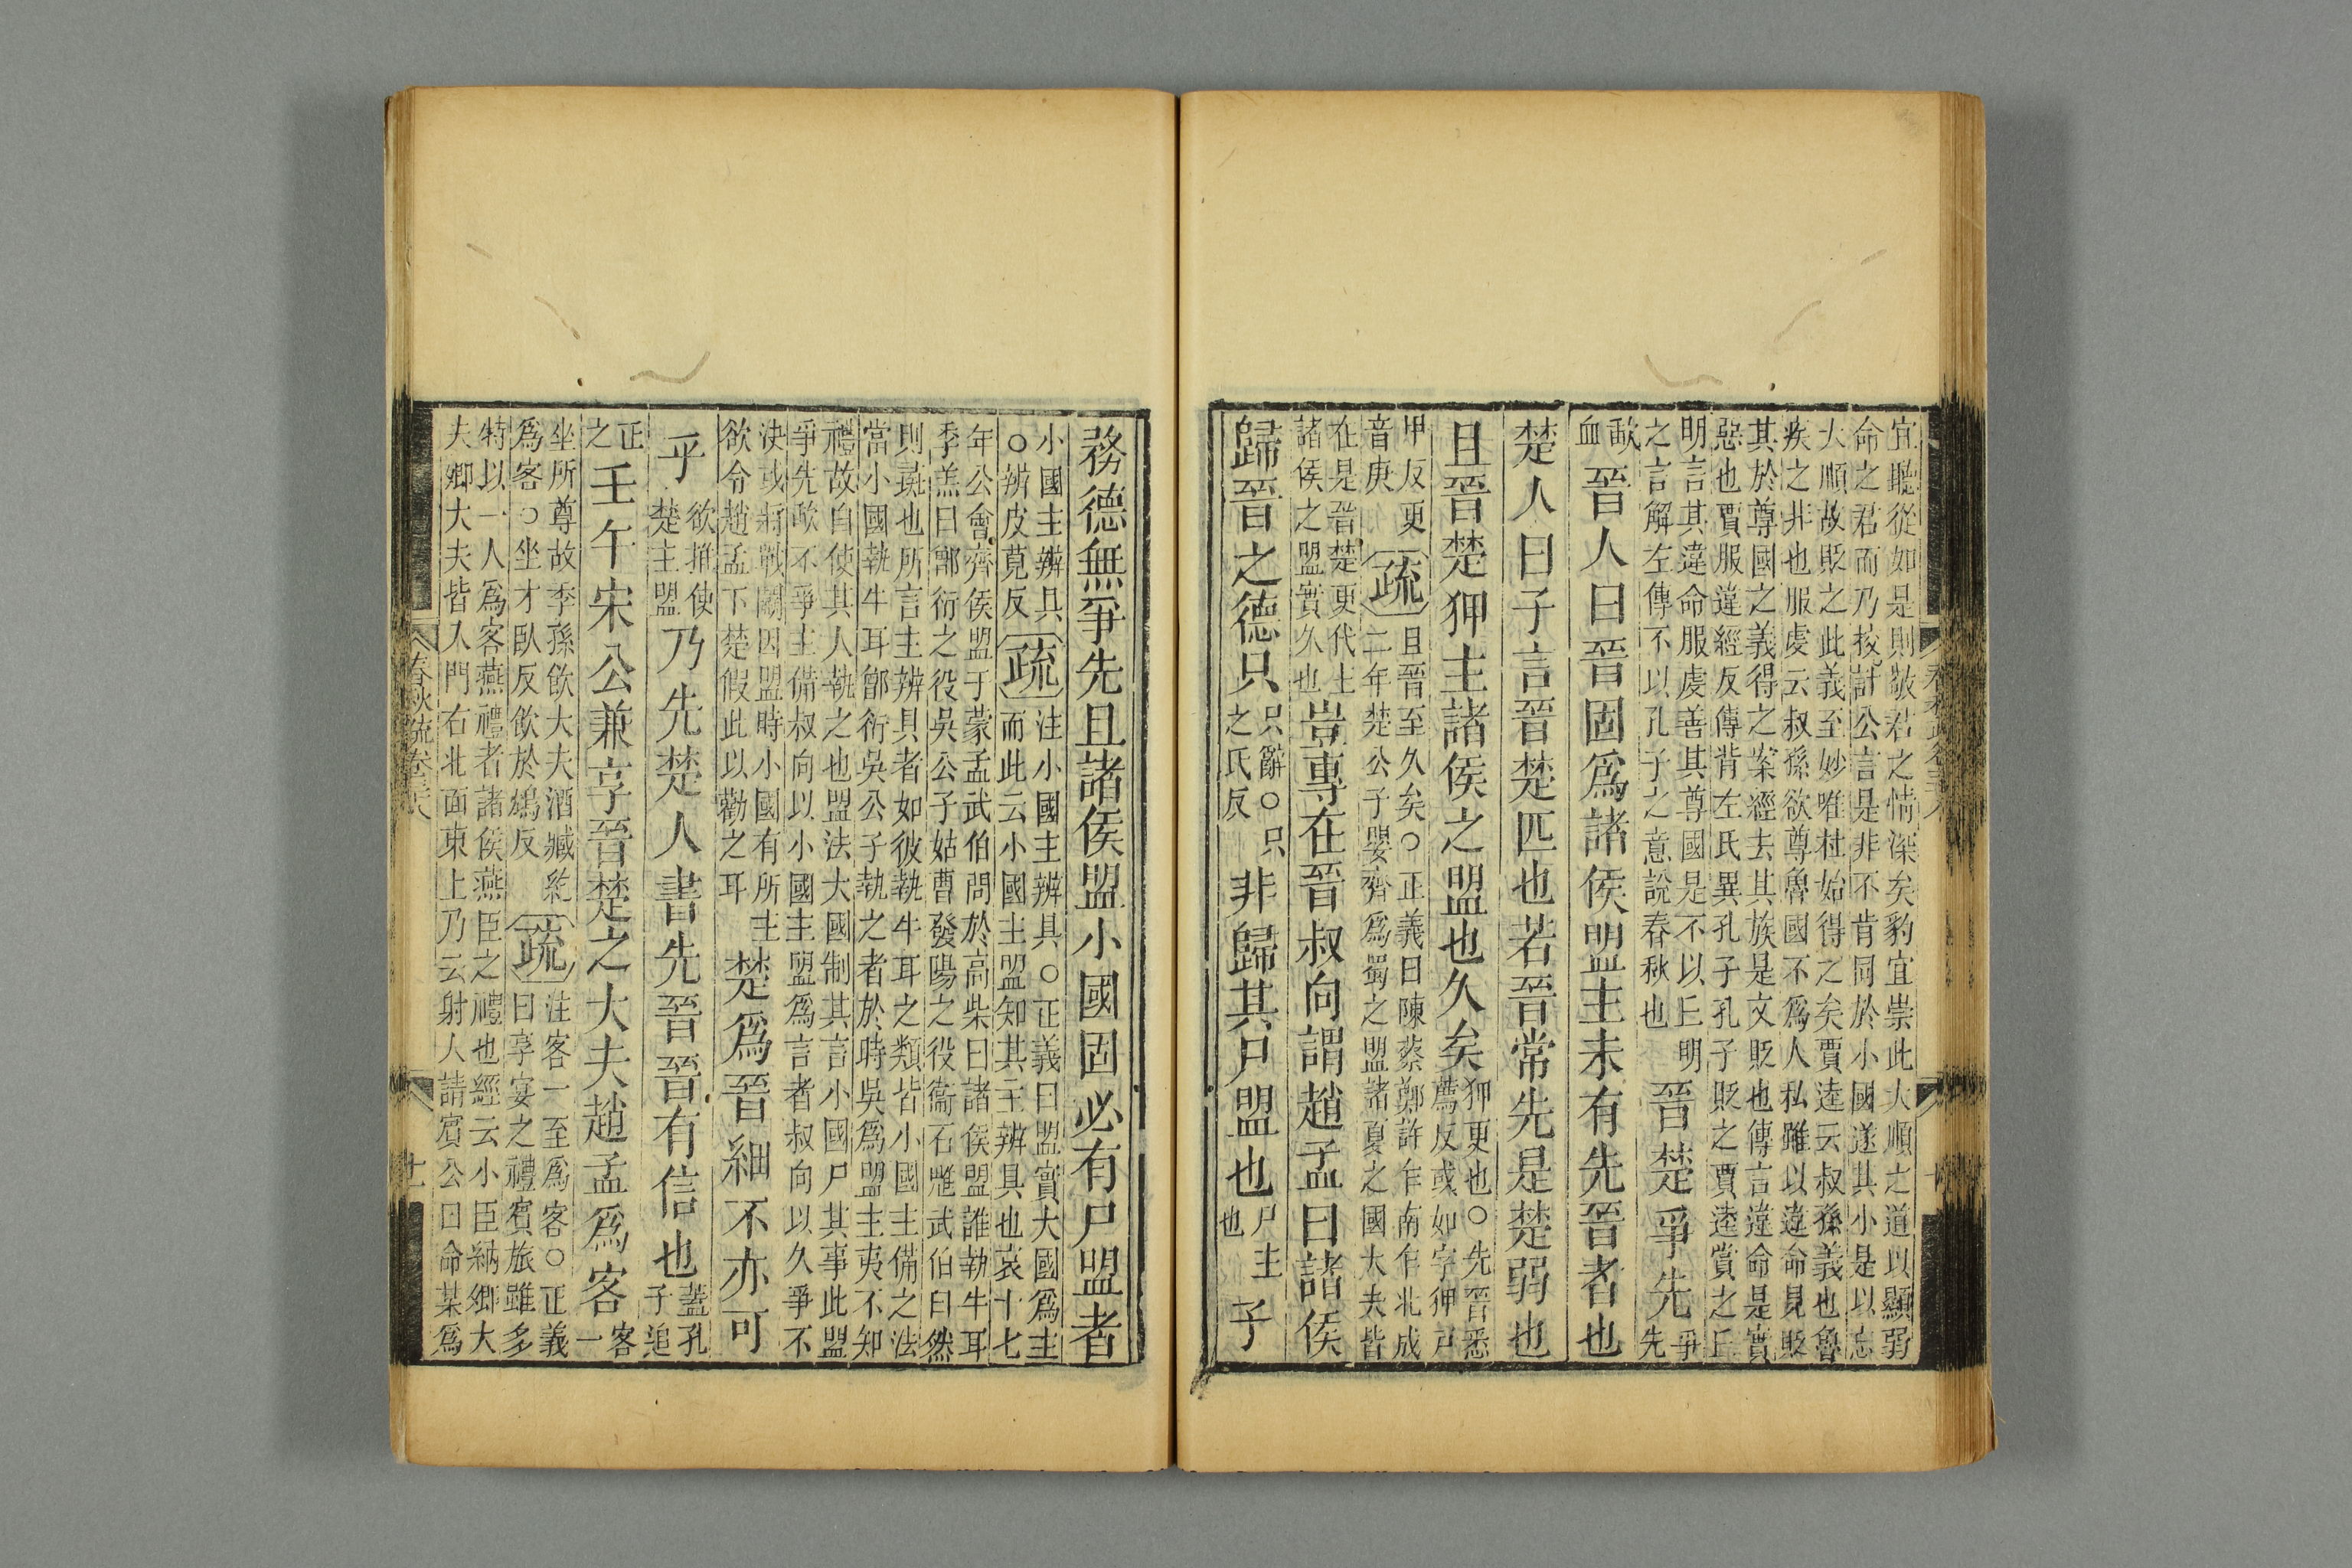 宜聽從如是則敬君之情深矣豹宜崇此大順之道以顯弱
命之君而乃挍計公言是非不肯同於小國遂其小是以忘
大順故貶之此義至妙唯杜始得之矣賈逵云叔孫義也魯
疾之非也服虔云叔孫欲尊魯國不爲人私雖以違命見貶
其於尊國之義得之案經去其族是文貶也傳言違命是實
惡也賈服違經反傳背左氏異孔子孔子貶之賈逵賞之丘
明言其違命服虔善其尊國是不以丘明
之言解左傳不以孔子之意說春秋也
晉楚爭先
爭
先
歃
血
晉人曰晉固爲諸侯盟主未有先晉者也
楚人曰子言晉楚匹也若晉常先是楚弱也
且晉楚狎主諸侯之盟也久矣
狎更也○先晉悉
薦反或如字狎戶
甲反更
音庚
疏
且晉至久矣○正義曰陳蔡鄭許乍南乍北成
二年楚公子嬰齊爲蜀之盟諸夏之國大夫皆
在是晉楚更代主
諸侯之盟實久也
豈專在晉叔向謂趙孟曰諸侯
歸晉之德只
只辭○只
之氏反
非歸其尸盟也
尸主
也
子
務德無爭先且諸侯盟小國固必有尸盟者
小國主辨具
○辨皮莧反
疏
注小國主辨具○正義曰盟實大國爲主
而此云小國主盟知其主辨具也哀十七
年公會齊侯盟于蒙孟武伯問於高柴曰諸侯盟誰執牛耳
季羔曰鄫衍之役吳公子姑曹發陽之役衞石魋武伯曰然
則彘也所言主辨具者如彼執牛耳之類皆小國主備之法
當小國執牛耳鄫衍吳公子執之者於時吳爲盟主夷不知
禮故自使其人執之也盟法大國制其言小國尸其事此盟
爭先歃不爭主備叔向以小國主盟爲言者叔向以久爭不
決或將戰鬭因盟時小國有所主
欲令趙孟下楚假此以勸之耳
楚爲晉細不亦可
乎
欲推使
楚主盟
乃先楚人書先晉晉有信也
蓋孔
子追
正
之
壬午宋公兼享晉楚之大夫趙孟爲客
客
一
坐所尊故季孫飲大夫酒臧紇
爲客○坐才臥反飲於鴆反
疏
注客一至爲客○正義
曰享宴之禮賓旅雖多
特以一人爲客燕禮者諸侯燕臣之禮也經云小臣納卿大
夫卿大夫皆入門右北面東上乃云射人請賓公曰命某爲
春秋疏卷三八
十一